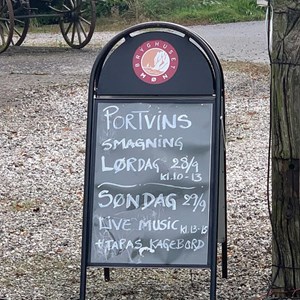 BRYGHUSET
MØN
PORTVINS
SMAGNING
LØRDAG 28/9
KL.10-13
SØNDAG 29/9
LIVE MUSIC KL.13-15
+ TAPAS KAGEBORD